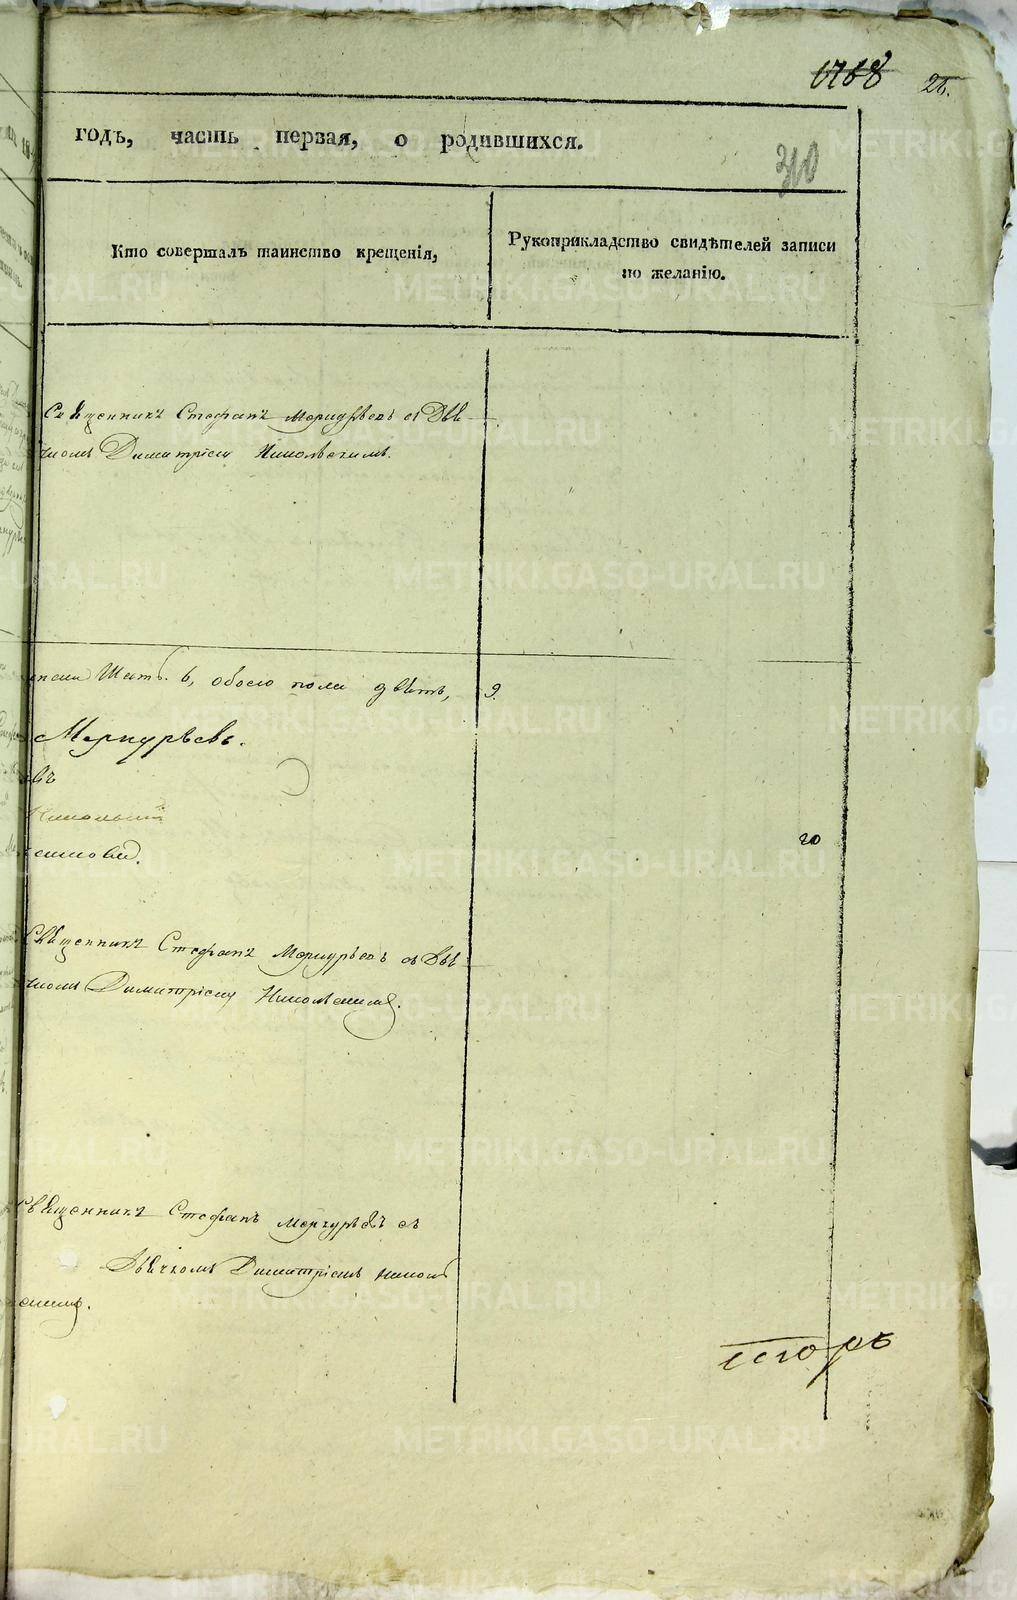 1768 26.
годъ, часть первая, о родившихся.
310
Кто совершалъ таинство крещенія,
Рукоприкладство свидѣтелей записи
по желанію.
Священникъ Стефанъ Меркурьевъ съ Дья-
чкомъ Димитріемъ Никольскимъ.
6, обоего пола девять, 9.
Меркурьевъ.
въ
Никольскій
20
Священникъ Стефанъ Меркурьевъ съ Дья-
чкомъ Димитріемъ Никольскимъ.
Священникъ Стефанъ Меркурьевъ съ
Дьячкомъ Димитріемъ Николь
скимъ.
METRIKI.GASO-URAL.RU